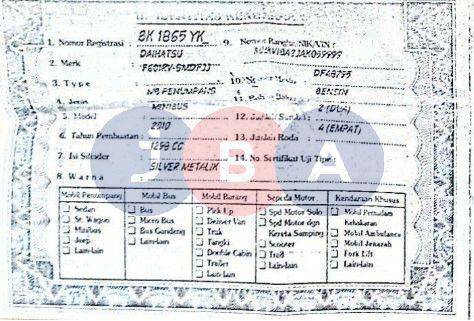 1. Nomor Registrasi : BK 1865 YK
2. Merk : DAIHATSU
3. Type : F601RV-GMDFJJ
4. Jenis : MB PENUMPANG
5. Model : MINIBUS
6. Tahun Pembuatan : 2010
7. Isi Silinder : 1298 CC
8. Warna : SILVER METALIK
9. Nomor Rangka/NIK/VIN :
10. Nomor Mesin : DFA8795
11. Bahan Bakar : BENSIN
12. Jumlah Sumbu : 2 (DUA)
13. Jumlah Roda : 4 (EMPAT)
14. No. Sertifikat Uji Tipe :
Mobil Penumpang
Sedan
St. Wagon
Minibus
Jeep
Lain-lain
Mobil Bus
Bus
Micro Bus
Bus Gandeng
Lain-lain
Mobil Barang
Pick Up
Deliver Van
Truk
Tangki
Double Cabin
Trailer
Lain-lain
Sepeda Motor
Spd Motor Solo
Spd Motor dgn
Kereta Samping
Scooter
Trail
Lain-lain
Kendaraan Khusus
Mobil Pemadam
Kebakaran
Mobil Ambulance
Mobil Jenazah
Fork Lift
Lain-lain
BA